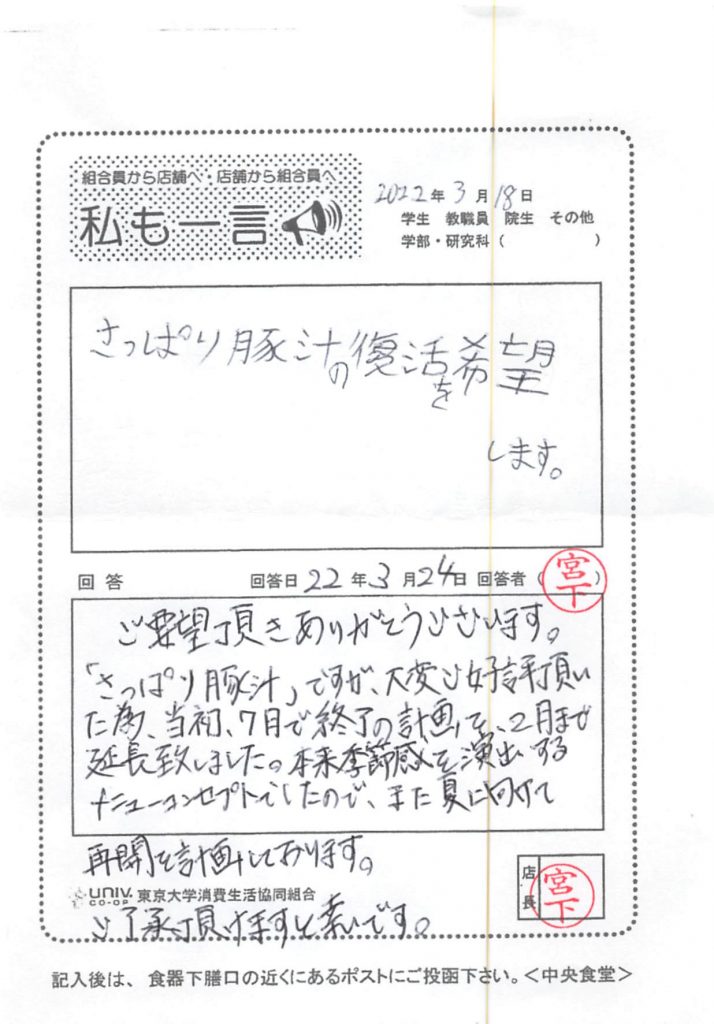 組合員から店舗へ・店舗から組合員へ
私も一言
2022年3月18日
学生 教職員 院生 その他
学部・研究科( )
さっぱり豚汁の復活を希望
します。
回答 回答日22年3月24日 回答者(宮下)
ご要望頂きありがとうございます。
「さっぱり豚汁」ですが、大変ご好評頂い
た為、当初、7月で終了の計画を、2月まで
延長致しました。本来季節感を演出する
メニューコンセプトでしたので、また夏に向けて
再開を計画しております。
UNIV. CO-OP 東京大学消費生活協同組合
店長 宮下
ご了承頂けますと幸いです。
記入後は、食器下膳口の近くにあるポストにご投函下さい。<中央食堂>